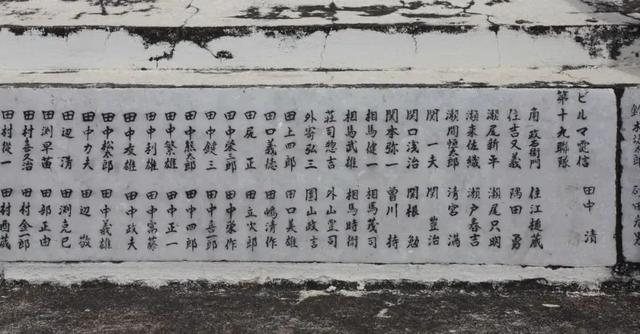 ビルマ電信 田中 清
第十九聯隊
角 政右衛門 住江樋蔵
住吉又義 隅田 勇
瀬尾新平 瀬尾只明
瀬来佐織 瀬戸春吉
瀬間恒太郎 清宮 満
関 一夫 関 豊治
関口浅治 関根 勉
関本弥一 曽川
相馬健一 相馬茂司
相馬武雄 相馬時衛
荘司惣吉 外山
弘三 園山政吉
田上四郎 田口美雄
田口義徳 田嶋清作
田尻 正
田中栄三郎 田中栄作
田中健三 田中喜一郎
田中熊太郎 田中四郎
田中繁雄 田中正一
田中利雄 田中富藤
田中友雄 田中政夫
田中松太郎 田中義雄
田中力夫 田辺 敬
田辺 清 田渕克已
田渕早苗 田部正由
田村喜久治 田村金一郎
田村俊一 田村酉蔵